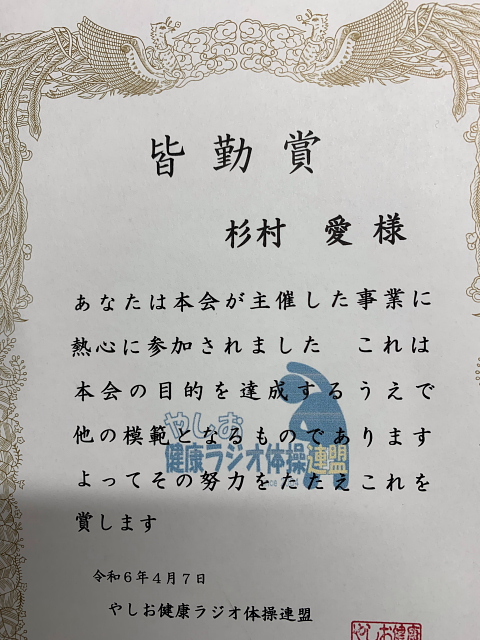 皆勤賞
杉村 愛様
あなたは本会が主催した事業に
熱心に参加されました これは
本会の目的を達成するうえで
他の模範となるものであります
よってその努力をたたえこれを
賞します
やしお
健康ラジオ体操連盟
令和6年4月7日
やしお健康ラジオ体操連盟
やしお健康